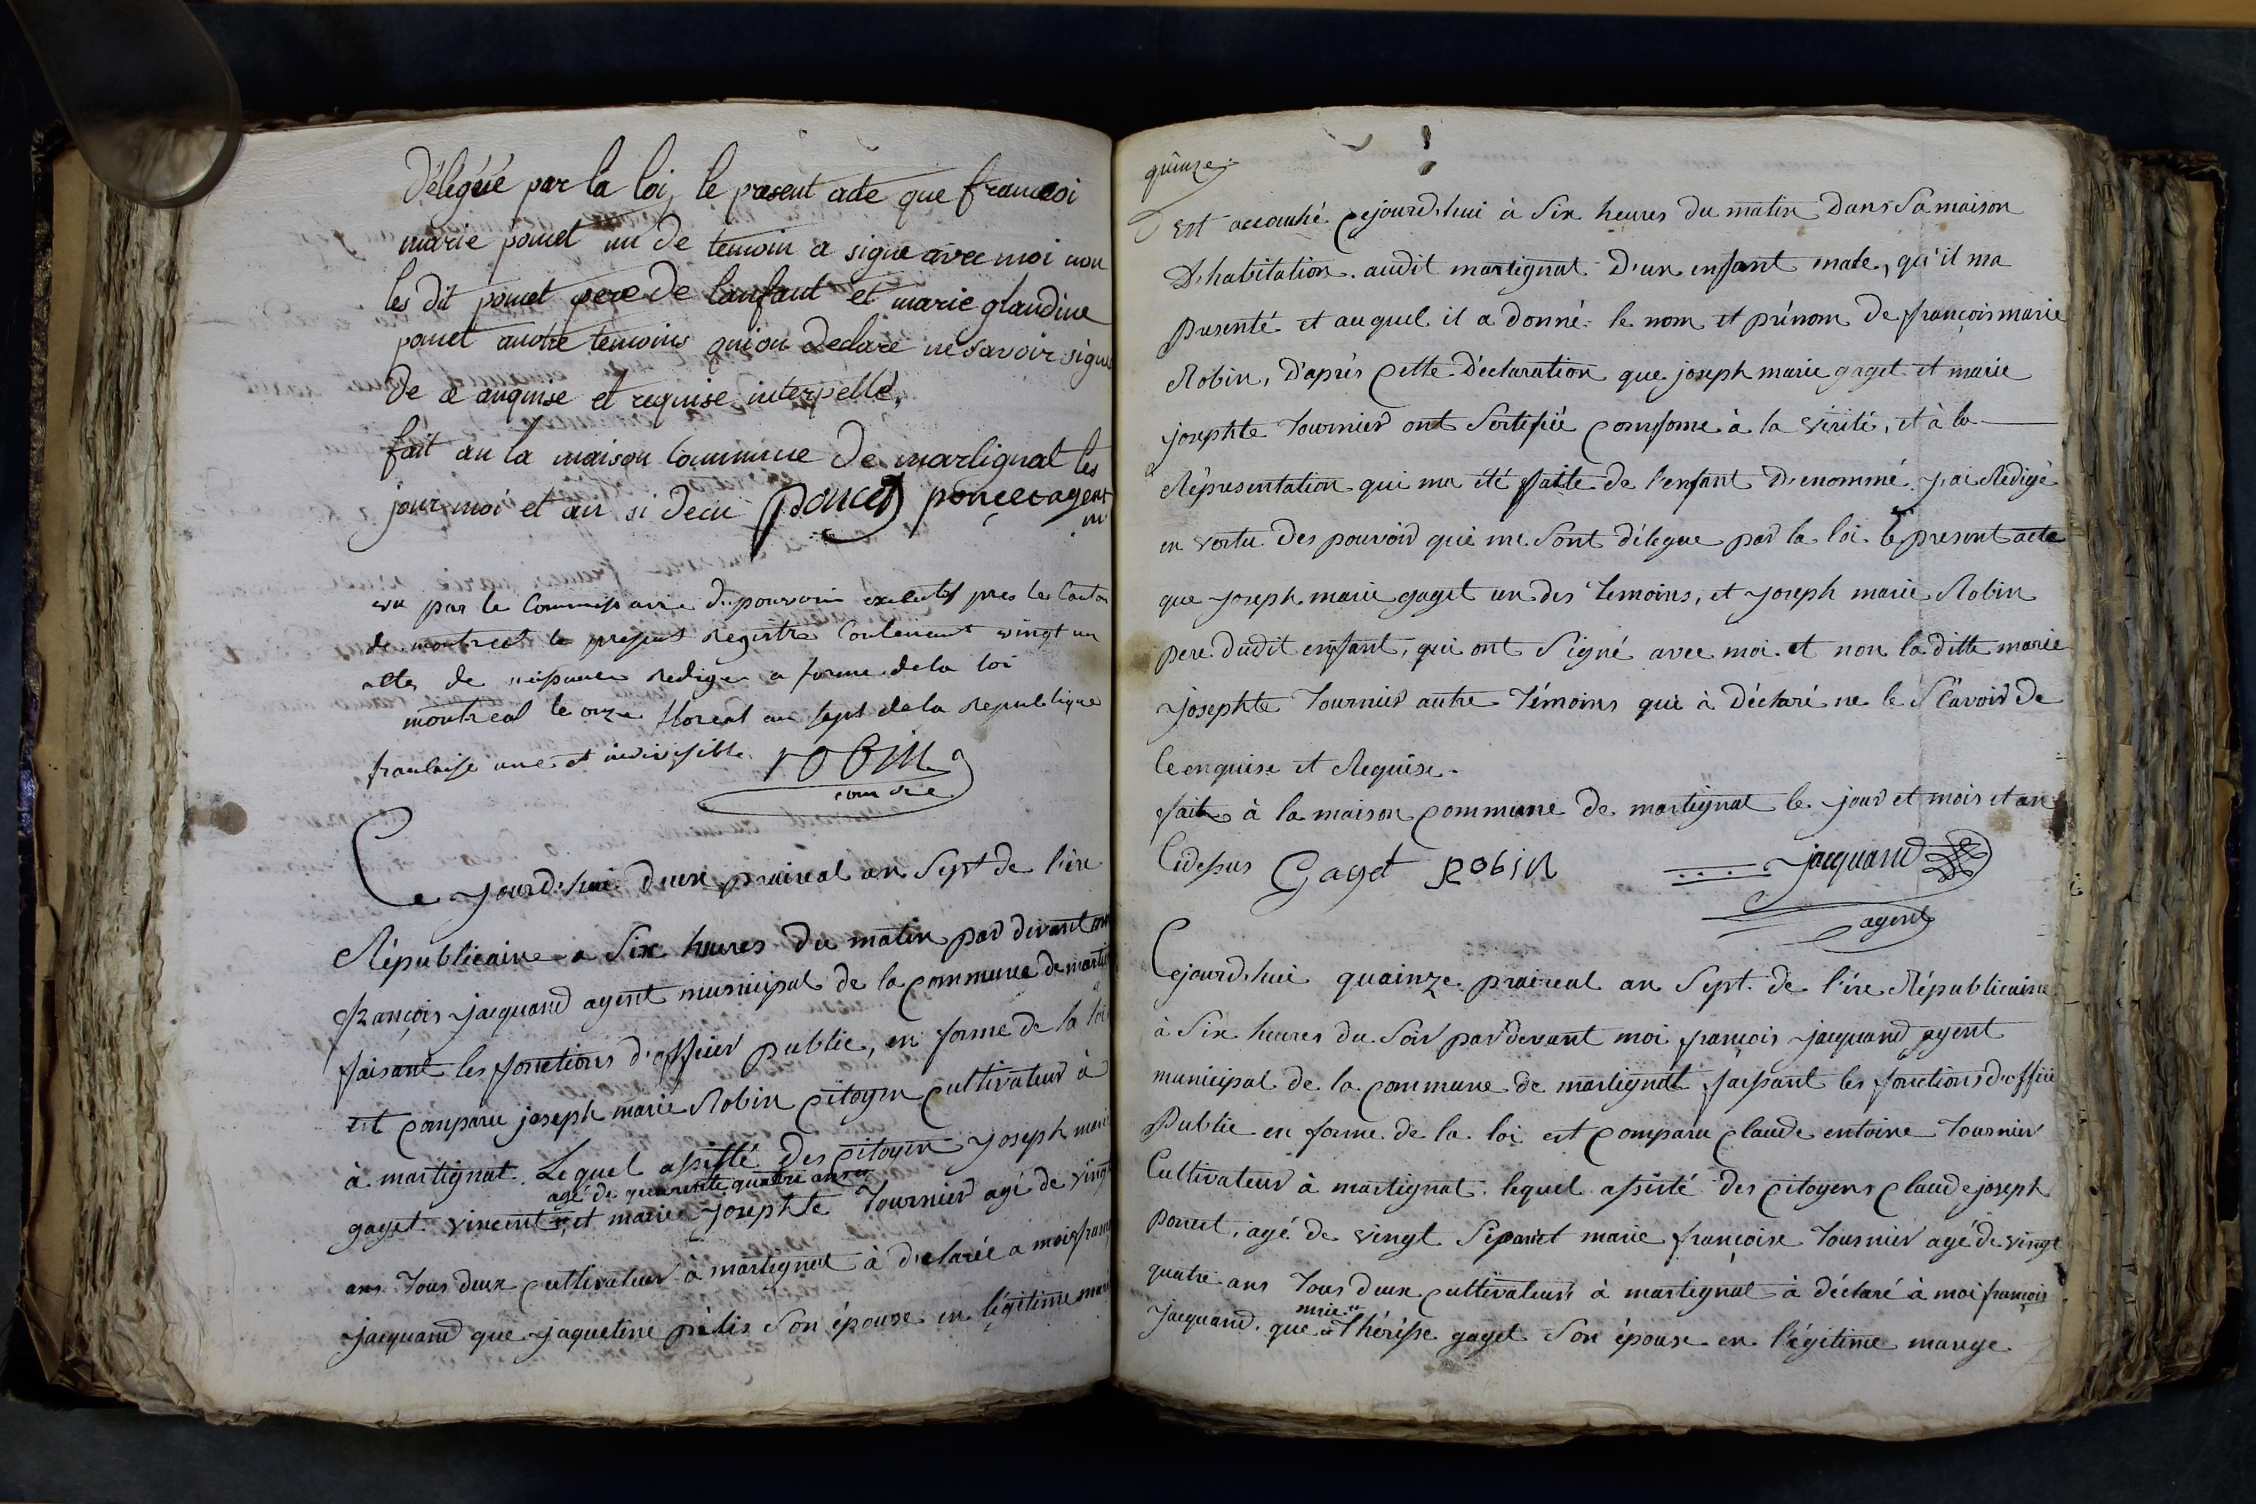 Délégué par la loi, le present acte que francoi
marie poncet un de temoin a signe avec moi non
les dit poncet pere de lanfant et marie glaudine
poncet autre temoins qui on declare ne savoir signe
de ce anquise et requise interpellé,
fait au la maison Commune de martignat les
jour moi et an si decu poncet poncet agent
m
vu par le Commissaire du pouvoir executif pres le Canton
de montreal le present Registre Contenant vingt un
actes de naissance rediger a forme de la loi
montreal le onze floreal an sept de la republique
francaise une et indivisible. robin
com re
Ce jourd'hui deux praireal an Sept de l'ère
Républicaine a Six heures du matin par devant moi
françois jacquand agent municipal de la commune de marti
faisant les fonctions d'officier public, en forme de la loi
est comparu joseph marie Robin citoyen cultivateur à
à martignat. Lequel assisté des citoyen joseph marie
agé de quarente quatre ans
gaget vincent, et marie josephte Tournier agé de vingt
ans Tous deux cultivateur a martignat à déclarée a moi fran
jacquand que jaqueline prélis son épouse en légitime mari
quinze
Est accouhé cejourd'hui à Six heures du matin Dans Sa maison
D'habitation audit martignat D'un enfant male, qu'il ma
presenté et auquel il a donné le nom et prénom de françois marie
Robin, D'aprés cette Déclaration que joseph marie gaget et marie
josephte Tournier ont Sertifiée comfome à la vérité, et à la
Réprésentation qui ma été faite de l'enfant Dénommé j'ai Rédigé
en vertu des pouvoir qui me sont délegue par la loi le present acte
que joseph marie gaget un des Temoins, et joseph marie Robin
pere dudit enfant, qui ont Signé avec moi et non la ditte marie
josephte Tournier autre Témoins qui à Déclaré ne le Scavoir de
ce enquise et Requise.
fait à la maison commune de martignat le jour et mois et an
Cidessus Gaget Robin jacquand
agent
Cejourd'hui quainze praireal an Sept de l'ére Républicaine
à Six heures du Soir par devant moi françois jacquand agent
municipal de la commune de martignat faissant les fonctions d'officié
Public en forme de la loi est comparu claude entoine Tournier
Cultivateur à martignat. lequel assisté des citoyens claude joseph
Poncet, agé de vingt Sept et marie françoise Tournier agé de vingt
quatre ans Tous deux cultivateur à martignat à déclaré à moi françois
mrie
jacquand. que Thérésse gaget Son épouse en légitime mariage